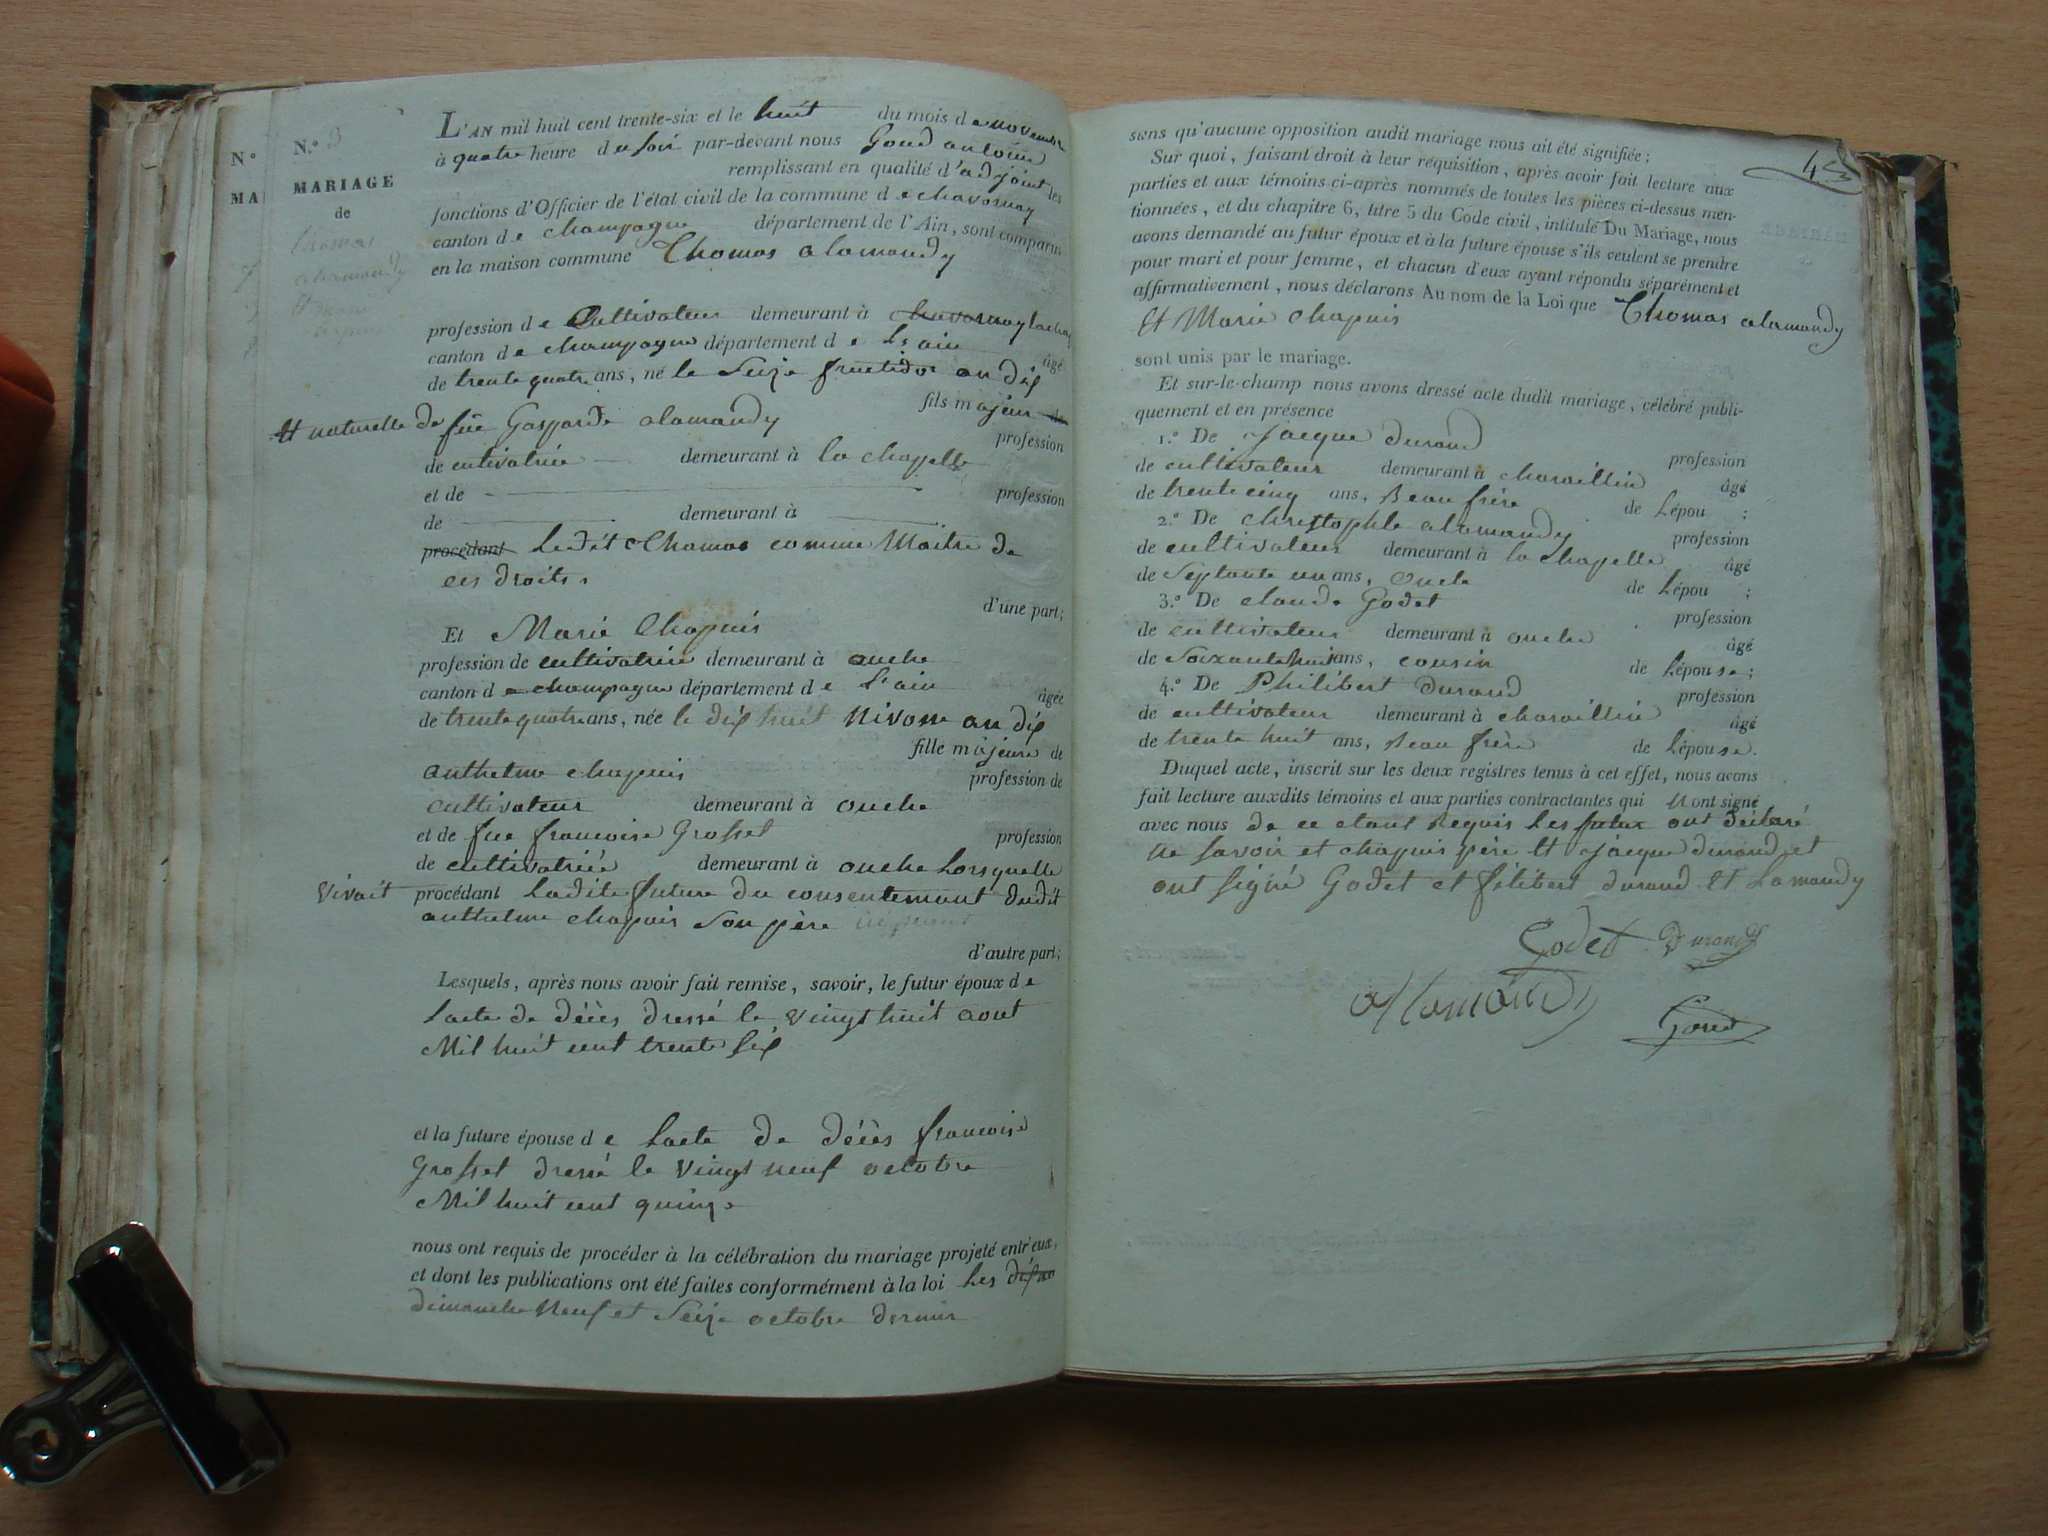 N.o
MA
N.o 3
MARIAGE
de
Thomas
alamandy
Et Marie
chapuis
L'AN mil huit cent trente-six et le huit du mois de novembre
à quatre heure du soir par-devant nous Goud antoine
remplissant en qualité d'adjoint les
fonctions d'Officier de l'état civil de la commune de chavornay
canton de champagne département de l'Ain, sont comparus
en la maison commune Thomas alamandy
profession de Cultivateur demeurant à chavornay lachap
canton de champagne département de L'ain âgé
de trente quatre ans, né le Seize fructidor an dix
fils majeur de
Et naturelle de füe Gasparde alamandy profession
de cutivatrice demeurant à la chapelle
et de profession
de demeurant à
procédant Ledit Thomas comme Maitre de
ces droits.
d'une part;
Et Marie Chapuis
profession de cultivatrice demeurant à ouche
canton de champagne département de L'ain âgée
de trente quatre ans, née le dix huit Nivose an dix
fille majeure de
anthelme chapuis profession de
cultivateur demeurant à ouche
et de fue francoise Grosset profession
de cultivatrice demeurant à ouche Lorsquelle
Vivait procédant Ladite future du consentement dudit
anthelme chapuis Son père
d'autre part;
Lesquels, après nous avoir fait remise, savoir, le futur époux de
Lacte de décès dressé le vingt huit aout
Mil huit cent trente Six
et la future épouse de Lacte de décès francoise
Grosset dressé le Vingt neuf octobre
Mil huit cent quinze
nous ont requis de procéder à la célébration du mariage projeté entr'eux,
et dont les publications ont été faites conformément à la loi Les
dimanche Neuf et Seize octobre dernier
sans qu'aucune opposition audit mariage nous ait été signifiée;
Sur quoi, faisant droit à leur réquisition, après avoir fait lecture aux
parties et aux témoins ci-après nommés de toutes les pièces ci-dessus men-
tionnées, et du chapitre 6, titre 5 du Code civil, intitulé Du Mariage, nous
avons demandé au futur époux et à la future épouse s'ils veulent se prendre
pour mari et pour femme, et chacun d'eux ayant répondu séparément et
affirmativement, nous déclarons Au nom de la Loi que Thomas alamandy
Et Marie chapuis
sont unis par le mariage.
Et sur-le-champ nous avons dressé acte dudit mariage, célébré publi-
quement et en présence
1.o De Jacque durand profession
de cultivateur demeurant à charaillin âgé
de trente cinq ans, Beau frère de Lépou ;
2.o De christophle alamandy profession
de cultivateur demeurant à la chapelle âgé
de Septante un ans, oncle de Lépou ;
3.o De claude Godet profession
de cultivateur demeurant à ouche âgé
de Soixante huit ans, cousin de Lépouse;
4.o De Philibert durand profession
de cultivateur demeurant à charaillin âgé
de trente huit ans, Beau frère de Lépouse.
Duquel acte, inscrit sur les deux registres tenus à cet effet, nous avons
fait lecture auxdits témoins et aux parties contractantes qui Nont signé
avec nous de ce etant Requis Les futur ont déclaré
Ne savoir et chapuis père Et jacque durand et
ont signé Godet et filibert durand Et Lamandy
Godet Durand
alamandy
Goud